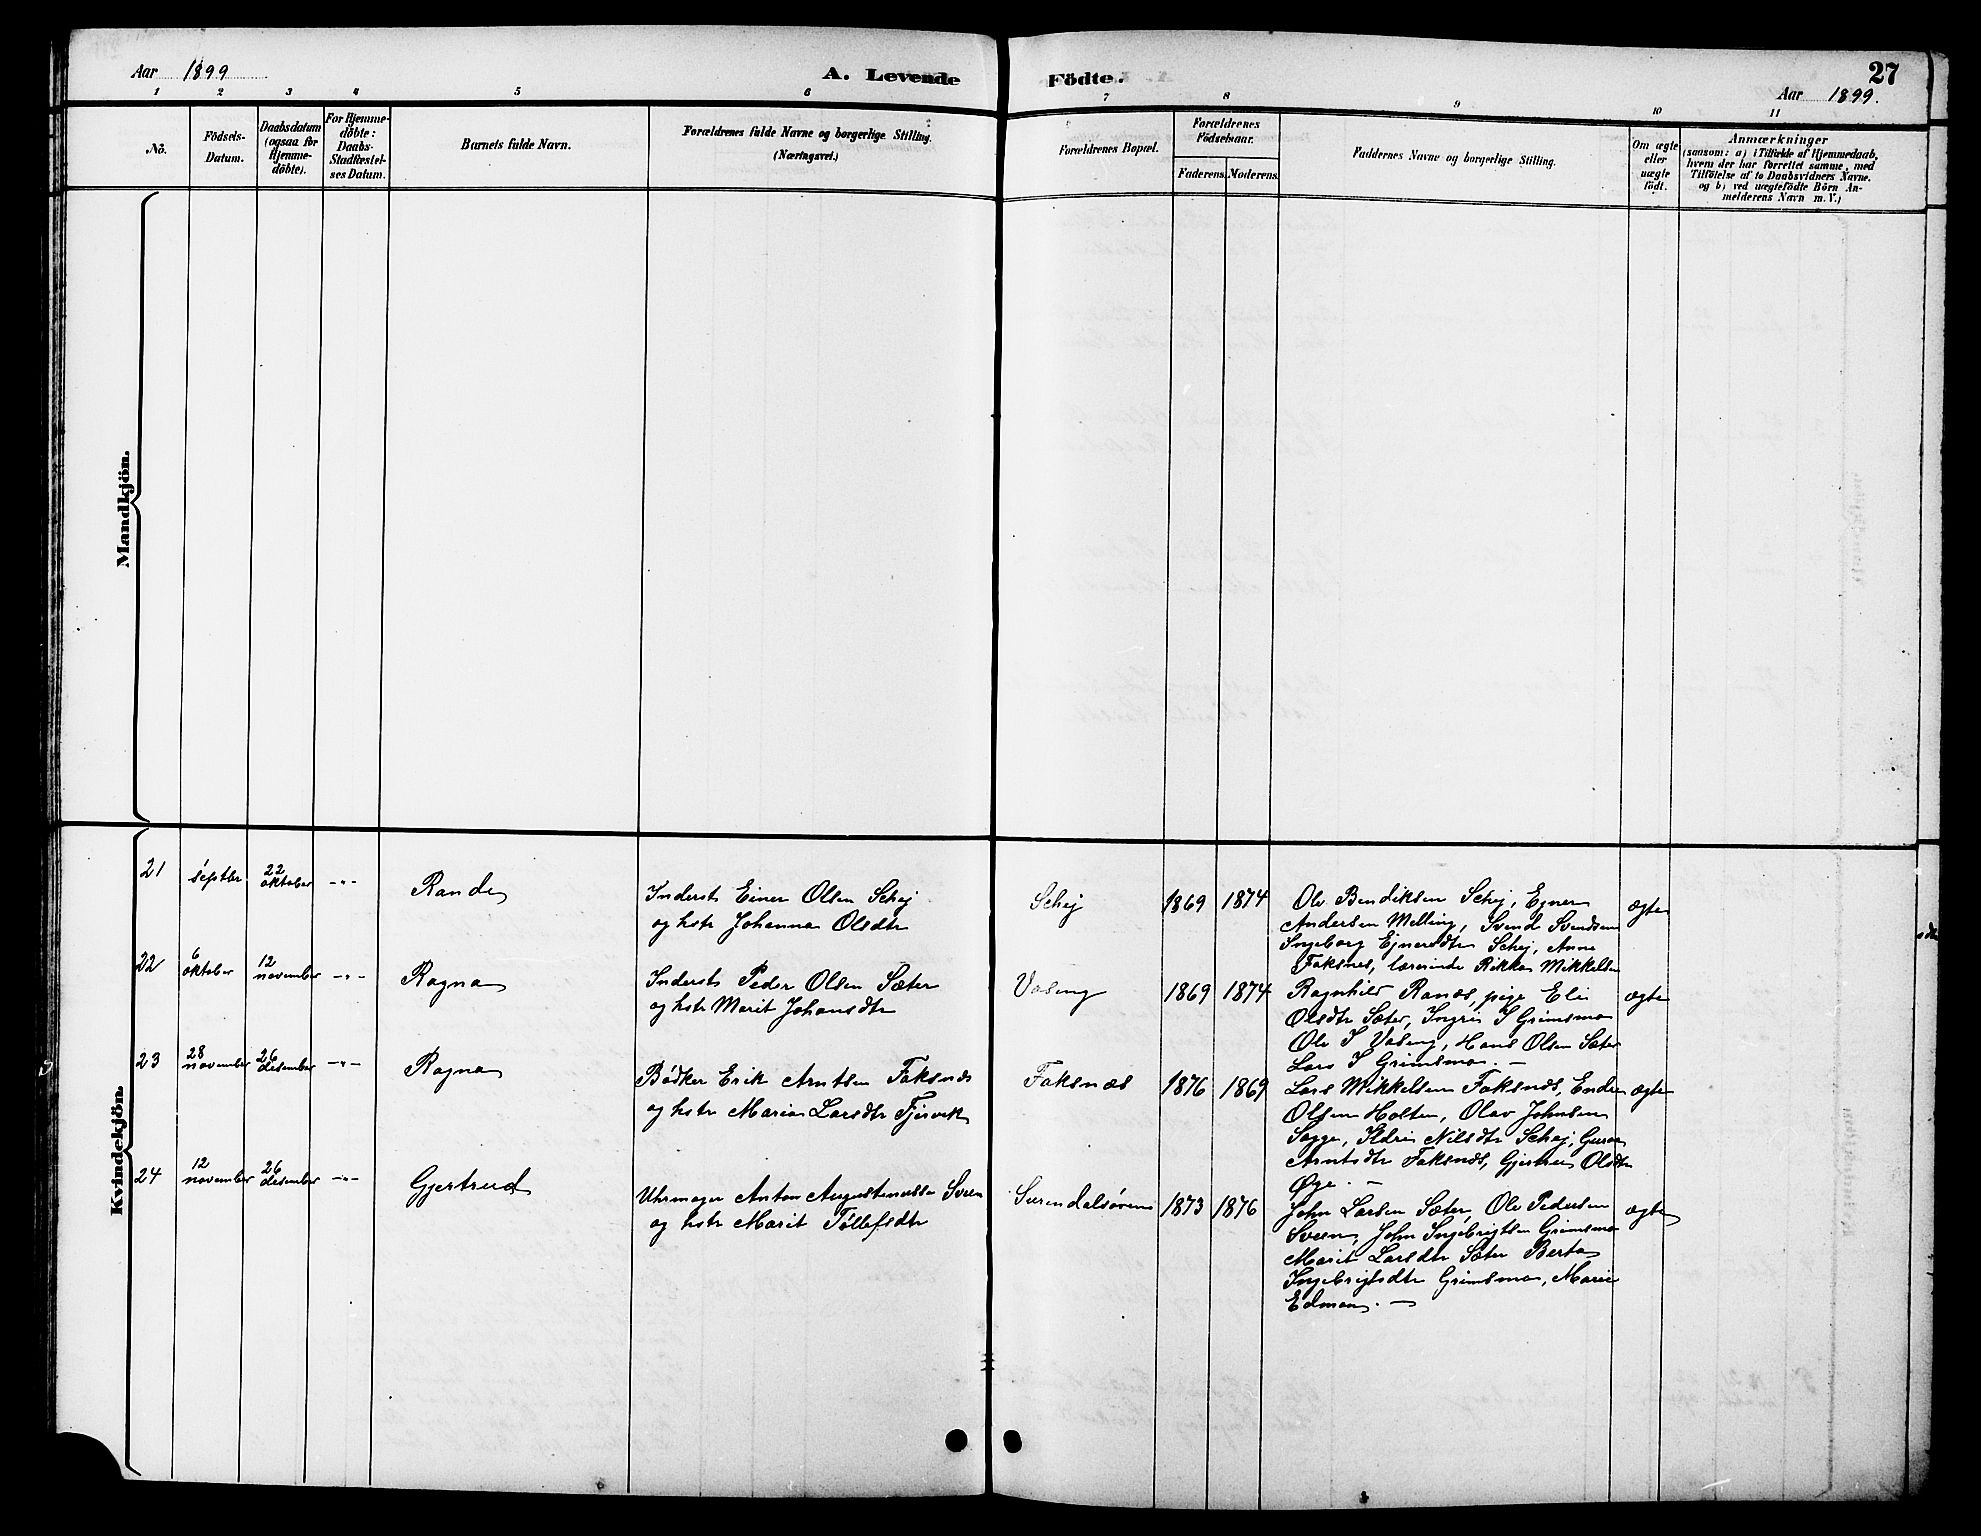 Aar 1899
A. Levende
Födte.
27
Aar 1899.
1 2 3 4 5 6 7 8 9 10 11
No.
Födsels-
Datum.
Daabsdatum
(ogsaa for
Hjemme-
döbte).
For Hjemme-
döbte:
Daabs-
Stadfæstel-
ses Datum.
Barnets fulde Navn.
Forældrenes fulde Navne og borgerlige Stilling.
(Næringsvei.)
Forældrenes Bopæl.
Forældrenes
Födselsaar.
Faderens. Moderens.
Faddernes Navne og borgerlige Stilling.
Om ægte
eller
uægte
födt.
Anmærkninger
(saasom: a) i Tilfælde af Hjemmedaab,
hvem der har forrettet samme, med
Tilföielse af to Daabsvidners Navne.
og b) ved uægtefödte Börn An-
melderens Navn m. V.)
Mandkjön.
Kvindekjön.
21
septbr
22
oktober
-"-
Rande
Inderst Einer Olsen Schej
og hstr Johanna Olsdtr
Schej
1869 1874
Ole Bendiksen Schej, Egner
Andersen Melling, Svend Svendsen
Ingeborg Ejnersdtr Schej, Anne
Faksnes, lærerinde Rikka Mikkelsen
ægte
22
6
oktober
12
november
-"-
Ragna
Inderst Peder Olsen Sæter
og hstr Marit Johansdtr
Vaseng
1869 1874
Ragnhild Ranæs, pige Eli
Olsdtr Sæter, Ingri I Grimsmo
Ole I Vaseng, Hans Olsen Sæter
Lars I Grimsmo. —
ægte
23
28
november
26
desember
-"-
Ragna
Bødker Erik Arntsen Faksnæs
og hstr Maria Larsdtr Fjervik
Faksnæs
1876 1869
Lars Mikkelsen Faksnæs, Endre
Olsen Holten, Olav Johnsen
Sogge, Ildri Nilsdtr Schej, Guroe
Arntsdtr Faksnæs, Gjertrud Olsdtr
Øye. —
ægte
24
12
november
26
desember
-"-
Gjertrud
Uhrmager Anton Augustinussen Sveen
og hstr Marit Tøllefsdtr
Surendalsøren
1873 1876
John Larsen Sæter, Ole Pedersen
Sveen, John Ingebrigtsen Grimsmo
Marit Larsdtr Sæter Berta
Ingebrigtsdtr Grimsmo, Marie
Edman. —
ægte